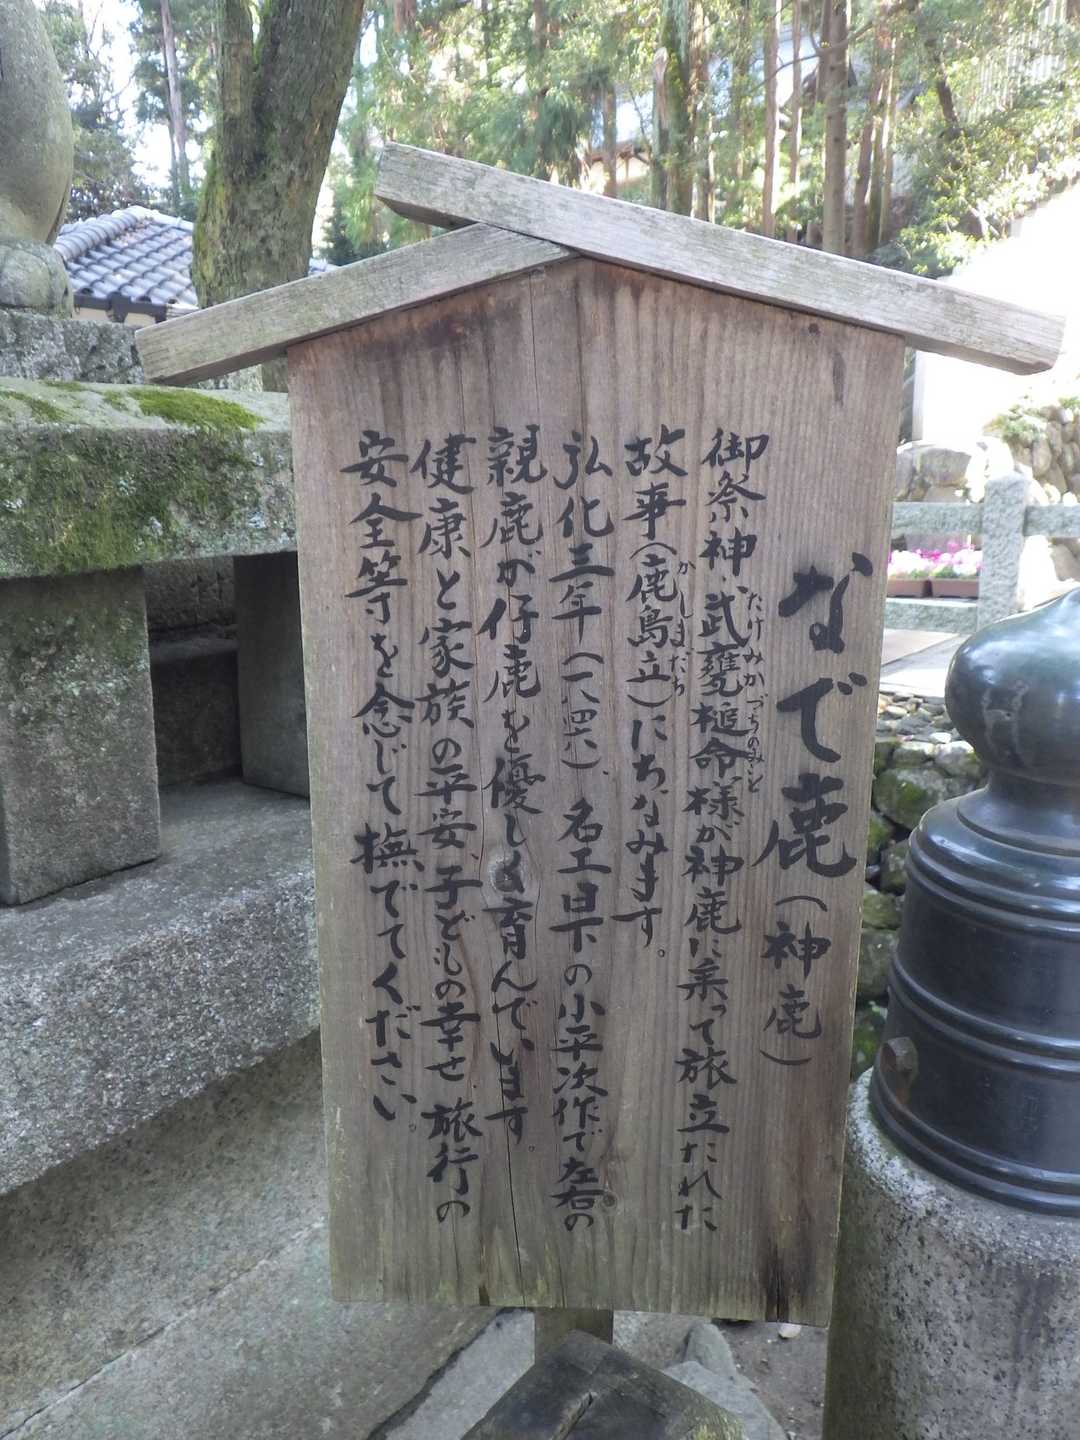 なで鹿(神鹿)
御祭神・武甕槌命様が神鹿に乗って旅立たれた
たけみかづちのみこと
故事(鹿島立)にちなみます。
かしまだち
弘化三年(一八四六)、名工日下の小平次作で左右の
親鹿が仔鹿を優しく育んでいます。
健康と家族の平安、子どもの幸せ、旅行の
安全等を念じて撫でてください。